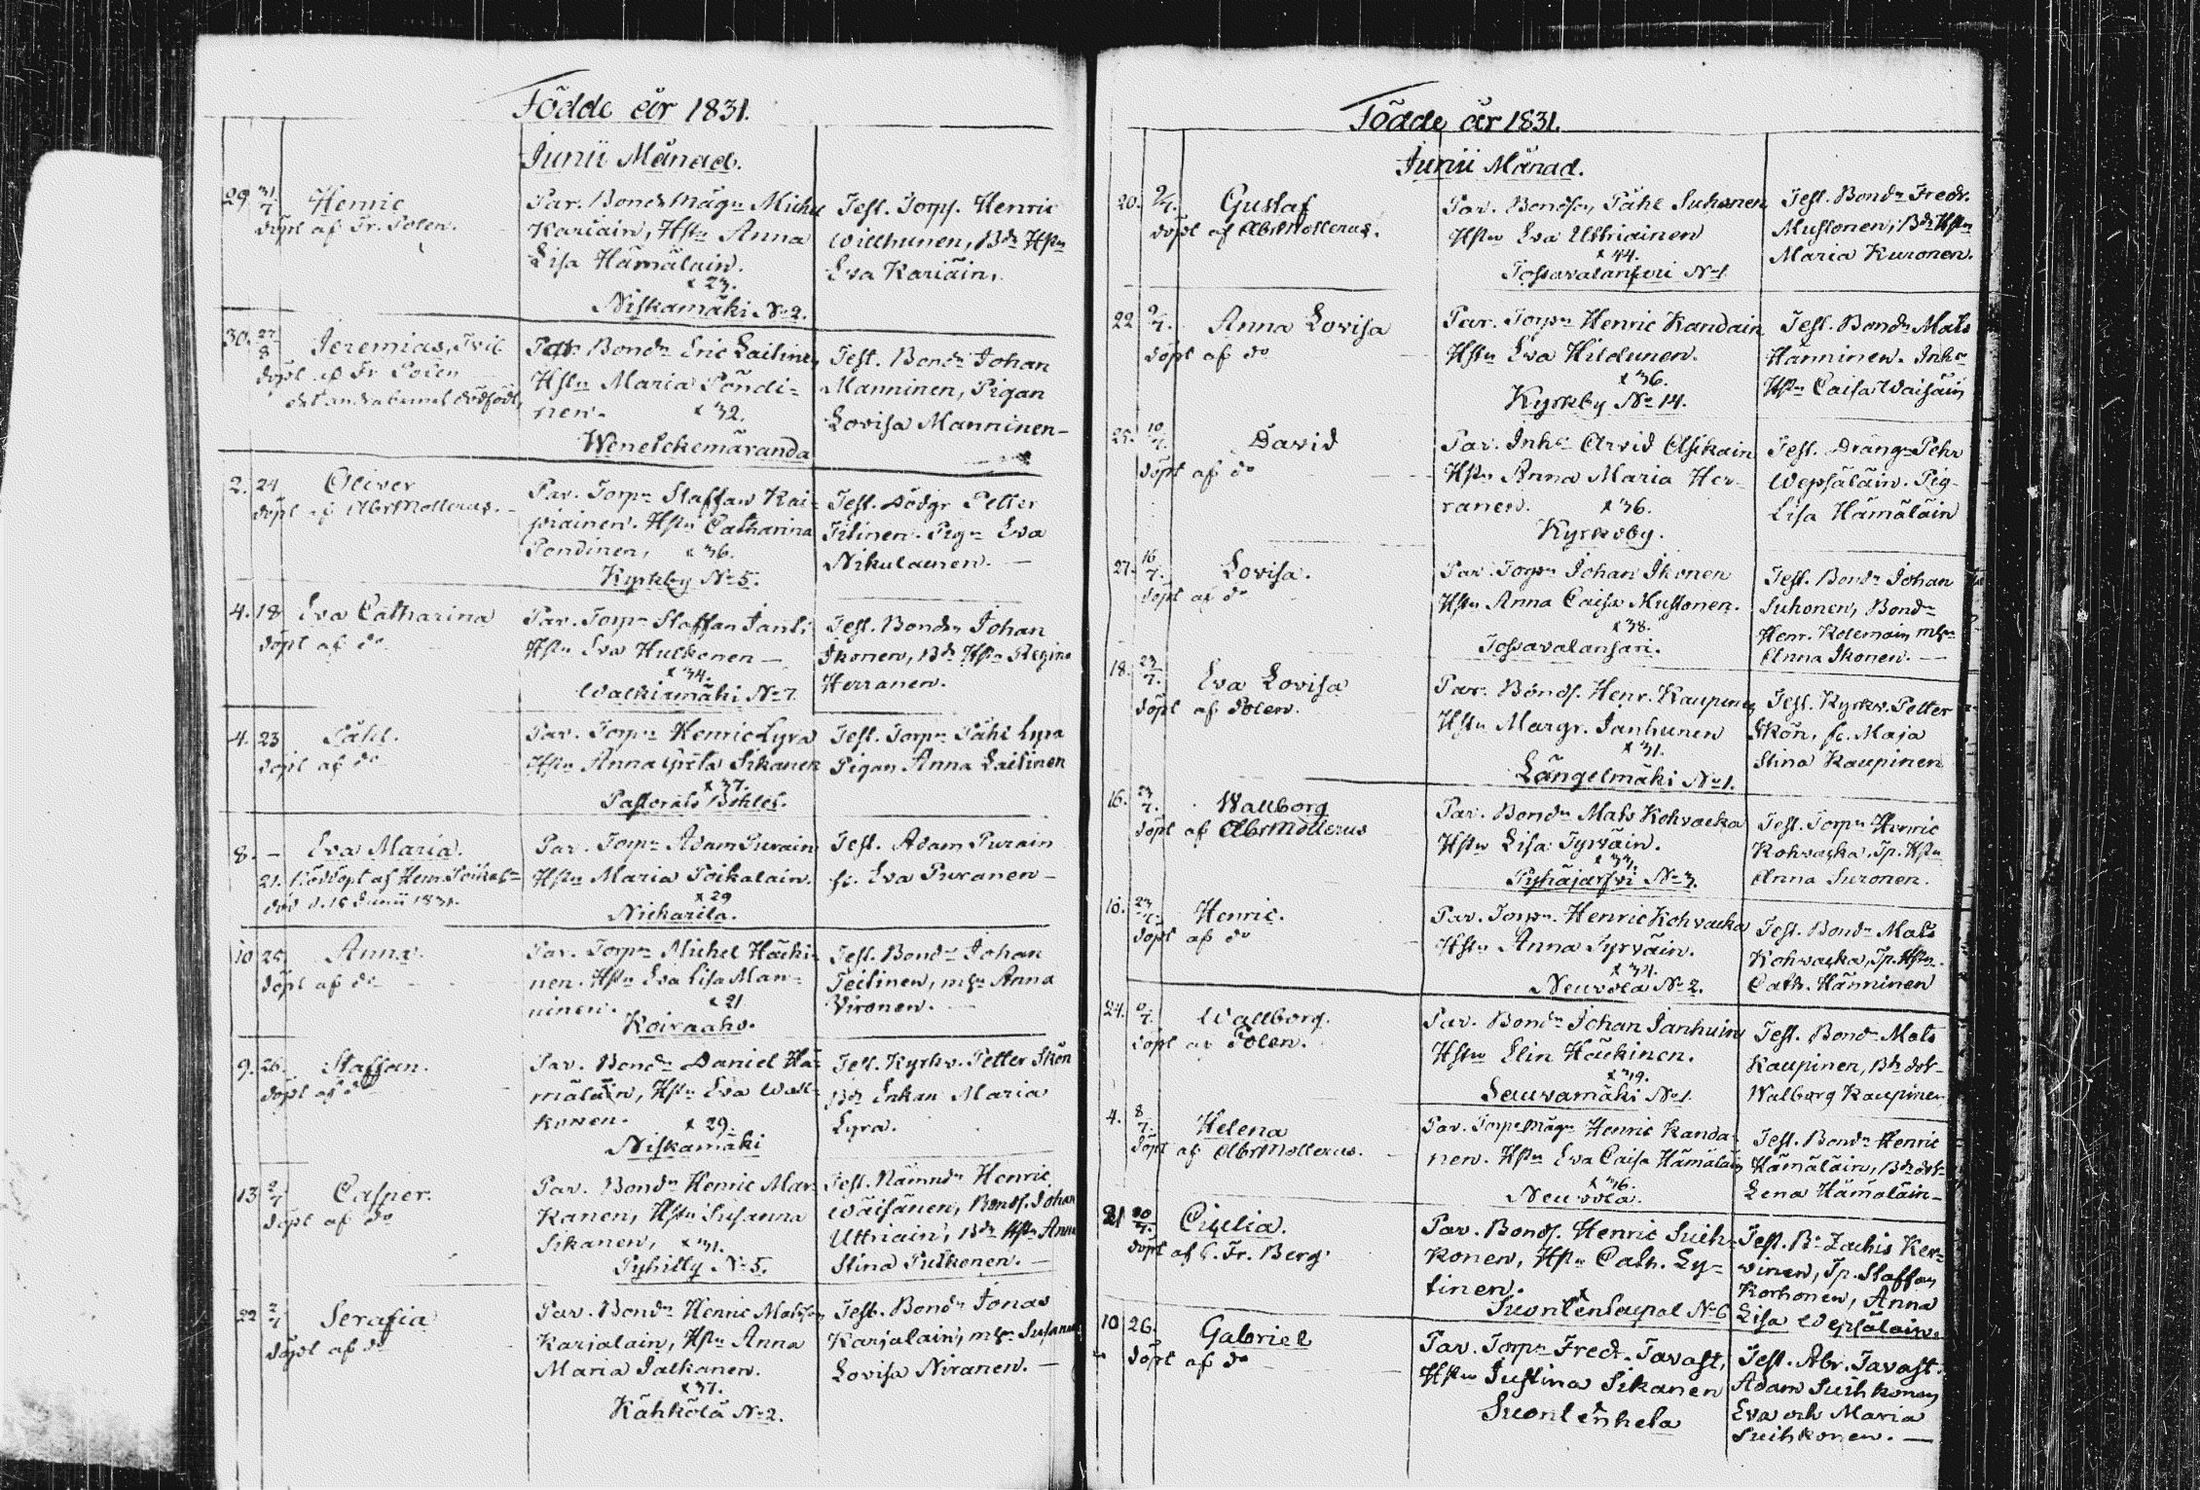 Födde år 1831.
Junii Månad.
29 31/7 Henric
döpt af Fr. Polen.
Par. Bonds Mågn Michel
Kariain, Hstn Anna
Lisa Hämäläin.
x 23.
Niskamäki No 2.
Test. Torp. Henric
Willhunen, Bdn Hstn
Eva Kariäin.
30. 27/8 Jeremias, Tvil
döpt af Fr Polen
det andra barnet dödfödt
Par. Bondn Eric Laitinen,
Hstn Maria Pöndi-
nen. x 32.
Test. Bondn Johan
Manninen, Pigan
Lovisa Manninen-
2. 24 Oliver
döpt af Abr Mollerus.
Par. Torpn Staffan Kai-
viainen. Hstn Catharina
Pondinen, x 36.
Kyrkby No 5.
Test. Petter
Pign Eva
Nikulainen. —
4. 18 Eva Catharina
döpt af do
Par. Torpn Staffan Janti
Hstn Eva Hulkonen —
x 34.
Walkiamäki No 7
Test. Bondn Johan
Ikonen, Bdn Hstn Regina
Herranen.
4. 23 Påhl.
döpt af do
Par. Torpn Henric Lyra
Hstn Anna Greta Sikanen
x 37.
Pastorats Bohlet.
Test. Torpn Påhl Lyra
Pigan Anna Laitinen
8. — Eva Maria.
21. Nöddöpt af Henr.
död d. 15 Junii 1831.
Par. Torpn Adam Purain
Hstn Maria Poikalain.
x 29
Niekarila.
Test. Adam Purain
fl. Eva Puranen —
10 25 Anna.
döpt af do
Par. Torpn Michel Häki-
nen. Hstn Eva Lisa Man-
ninen. x 21
Koiraaho.
Test. Bondn Johan
Teitinen, Anna
Vironen. —
9. 26. Staffan.
döpt af do
Par. Bondn Daniel Hä-
mäläin, Hstn Eva Wal-
konen. x 29.
Niskamäki
Test. Kyrkv. Petter Skön
Bdn Enkan Maria
Lyra.
13 2/7 Casper.
döpt af do
Par. Bondn Henric Mar-
kanen, Hstn Susanna
Sikanen, x 31.
Pyhilly No 5.
Test. Nämndn Henric
Wäisänen, Bonds. Johan
Uttriain, Bdn Hstn Anna
Stina Pulkonen. —
22 2/7 Serafia
döpt af do
Par. Bondn Henric Matsson
Karjalain, Hstn Anna
Maria Jalkanen.
x 37.
Kähkölä No 2.
Test. Bondn Jonas
Karjalain, Susanna
Lovisa Niranen. —
Födde år 1831.
Junii Månad.
20. 2/7. Gustaf
döpt af Abr Mollerus.
Par. Bondsn, Påhl Suhonen
Hstn Eva Uttriainen
x 44.
Tossavalansari No 1
Test. Bondn Fredr.
Mustonen, Bdn Hstn
Maria Kuronen.
22 2/7. Anna Lovisa
döpt af do
Par. Torpn Henric Kandain
Hstn Eva Hildunen.
x 36.
Kyrkby No 14.
Test. Bondn Mats
Hänninen. Inhn
Hstn Caisa Waisäin
25. 10/7. David
döpt af do
Par. Inhn Arvid Asikain
Hstn Anna Maria Her-
ranen. x 36.
Kyrkoby.
Test. Drängn Pehr
Wepsäläin. Pig-
Lisa Hämäläin
27. 16/7. Lovisa.
döpt af do
Par. Torpn Johan Ikonen
Hstn Anna Caisa Mustonen.
x 38.
Tossavalansari.
Test. Bondn Johan
Suhonen, Bondn
Henr. Kolemain
Anna Ikonen. —
18. 23/7. Eva Lovisa
döpt af Polen.
Par. Bonds. Henr. Kaupinen
Hstn Margr. Janhunen
x 31.
Längelmäki No 1.
Test. Kyrkv. Petter
Skön, fl. Maja
Stina Kaupinen
16. 23/7. Wallborg
döpt af Abr Mollerus
Par. Bondn Mats Kohvacka
Hstn Lisa Tyrväin.
x 33.
Pyhäjärfvi No 3.
Test. Torpn Henric
Kohvacka, Tp. Hstn
Anna Suronen.
10. 23/7 Henric.
döpt af do
Par. Torpn. Henric Kohvacka
Hstn Anna Tyrväin.
x 34.
Neuvola No 2.
Test. Bondn Mats
Kohvacka, Tp. Hstn
Cath. Hänninen
24. 2/7. Wallborg.
döpt av Polen.
Par. Bondn Johan Janhuin
Hstn Elin Häckinen.
x 39.
Sauvamäki No 1.
Test. Bondn Mats
Kaupinen, Bds dot-
Walborg Kaupinen
4. 8/7. Helena
döpt af Abr Mollerus.
Par. Torps Mågn Henric Kanda-
nen. Hstn Eva Caisa Hämäläin
x 36.
Neuvola.
Test. Bondn Henric
Hämäläin, Bds dot-
Lena Hämäläin-
21 20/7. Ciulia.
döpt af C. Fr. Berg
Par. Bonds. Henric Suih-
konen, Hstn Cath. Ly-
tinen.
No 6
Test. Bn Zachis Ker-
vinen, Tp. Staffan
Korhonen, Anna
Lisa Wepsäläin.
10 26. Gabriel
döpt af do
Par. Torpn Fredr. Tavast,
Hstn Justina Sikanen
Suontenhela
Test. Abr. Tavast.
Adam Suihkonen
Eva och Maria
Suihkonen. —